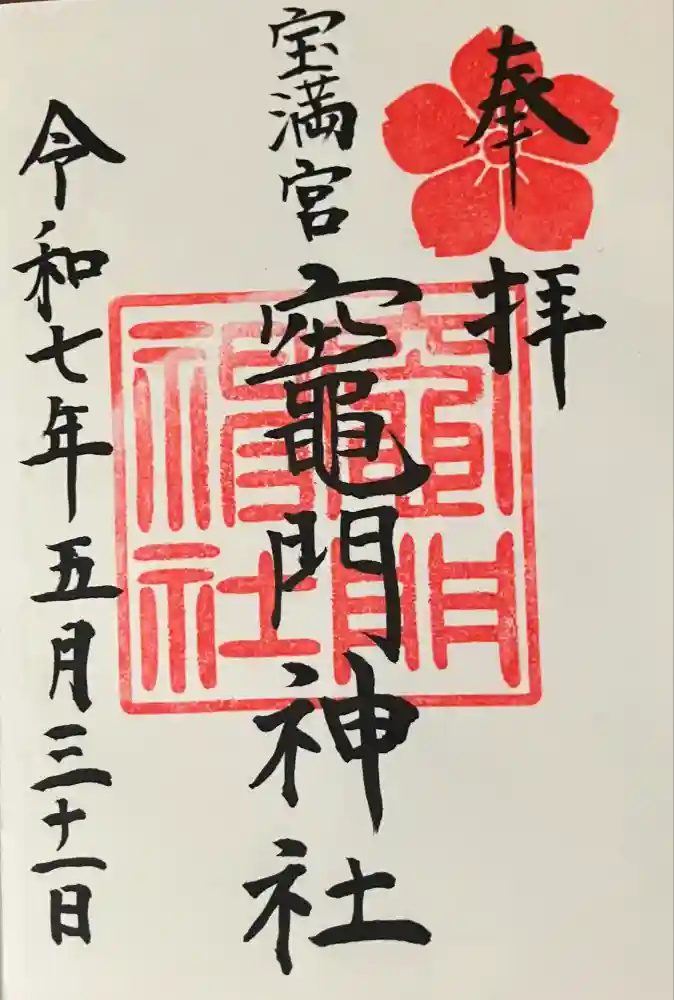 奉拝
宝満宮
竈門神社
竈門神社
令和七年五月三十一日